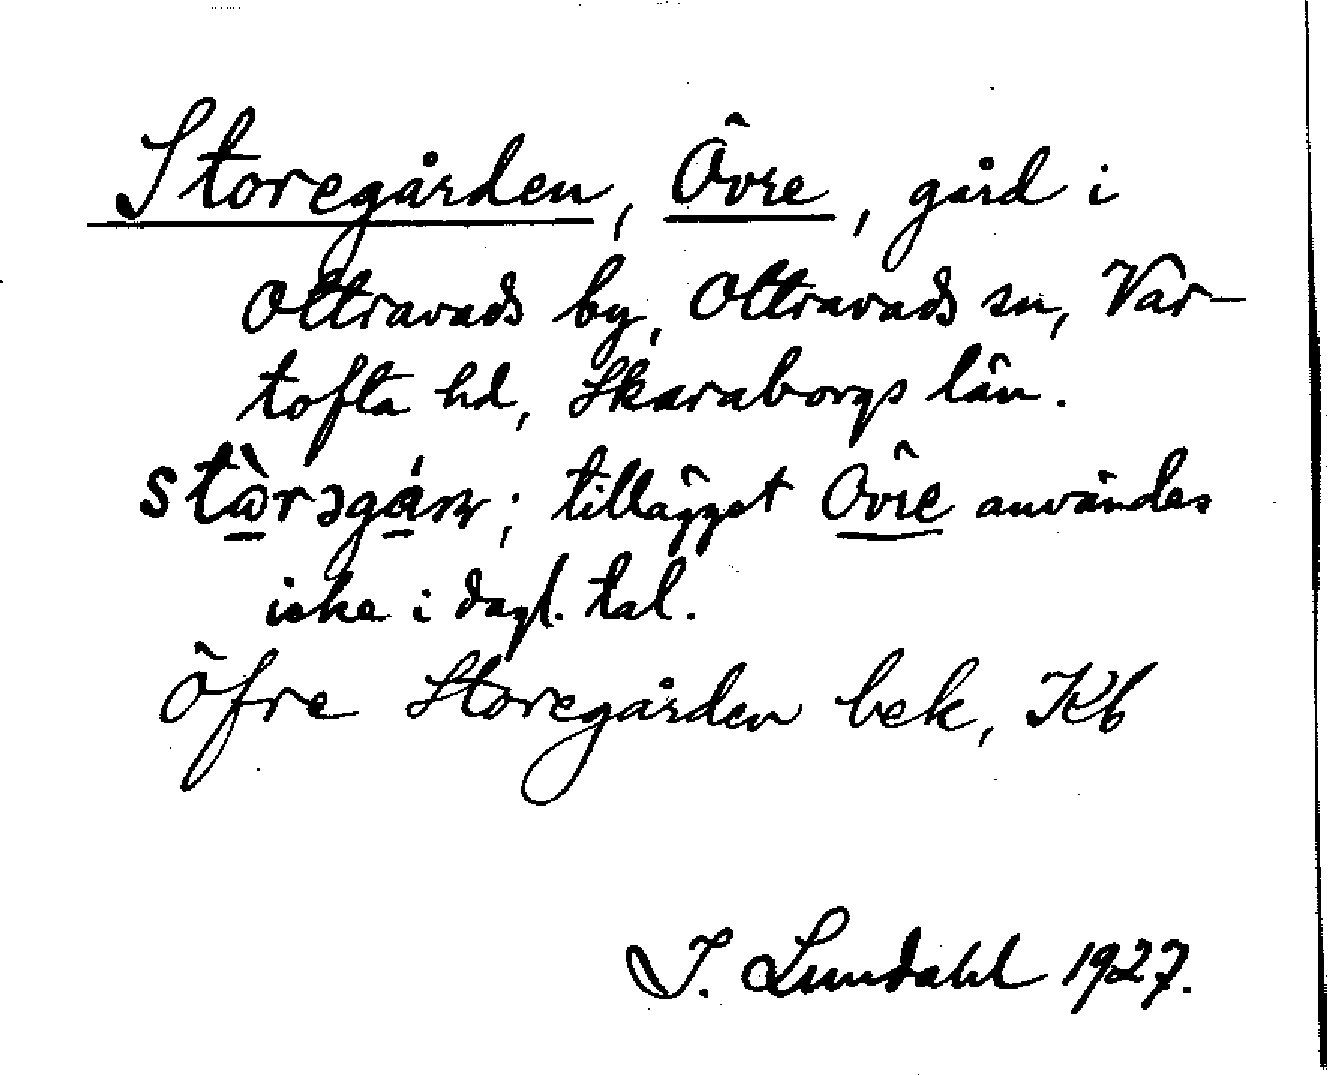 Storegården, Övre, gård i
Ottravads by, Ottravads sn, Var-
tofta hd, Skaraborgs län.
; tillägget Övre användes
icke i dagl. tal.
Öfre Storegården bek, Kb
I. Lundahl 1927.